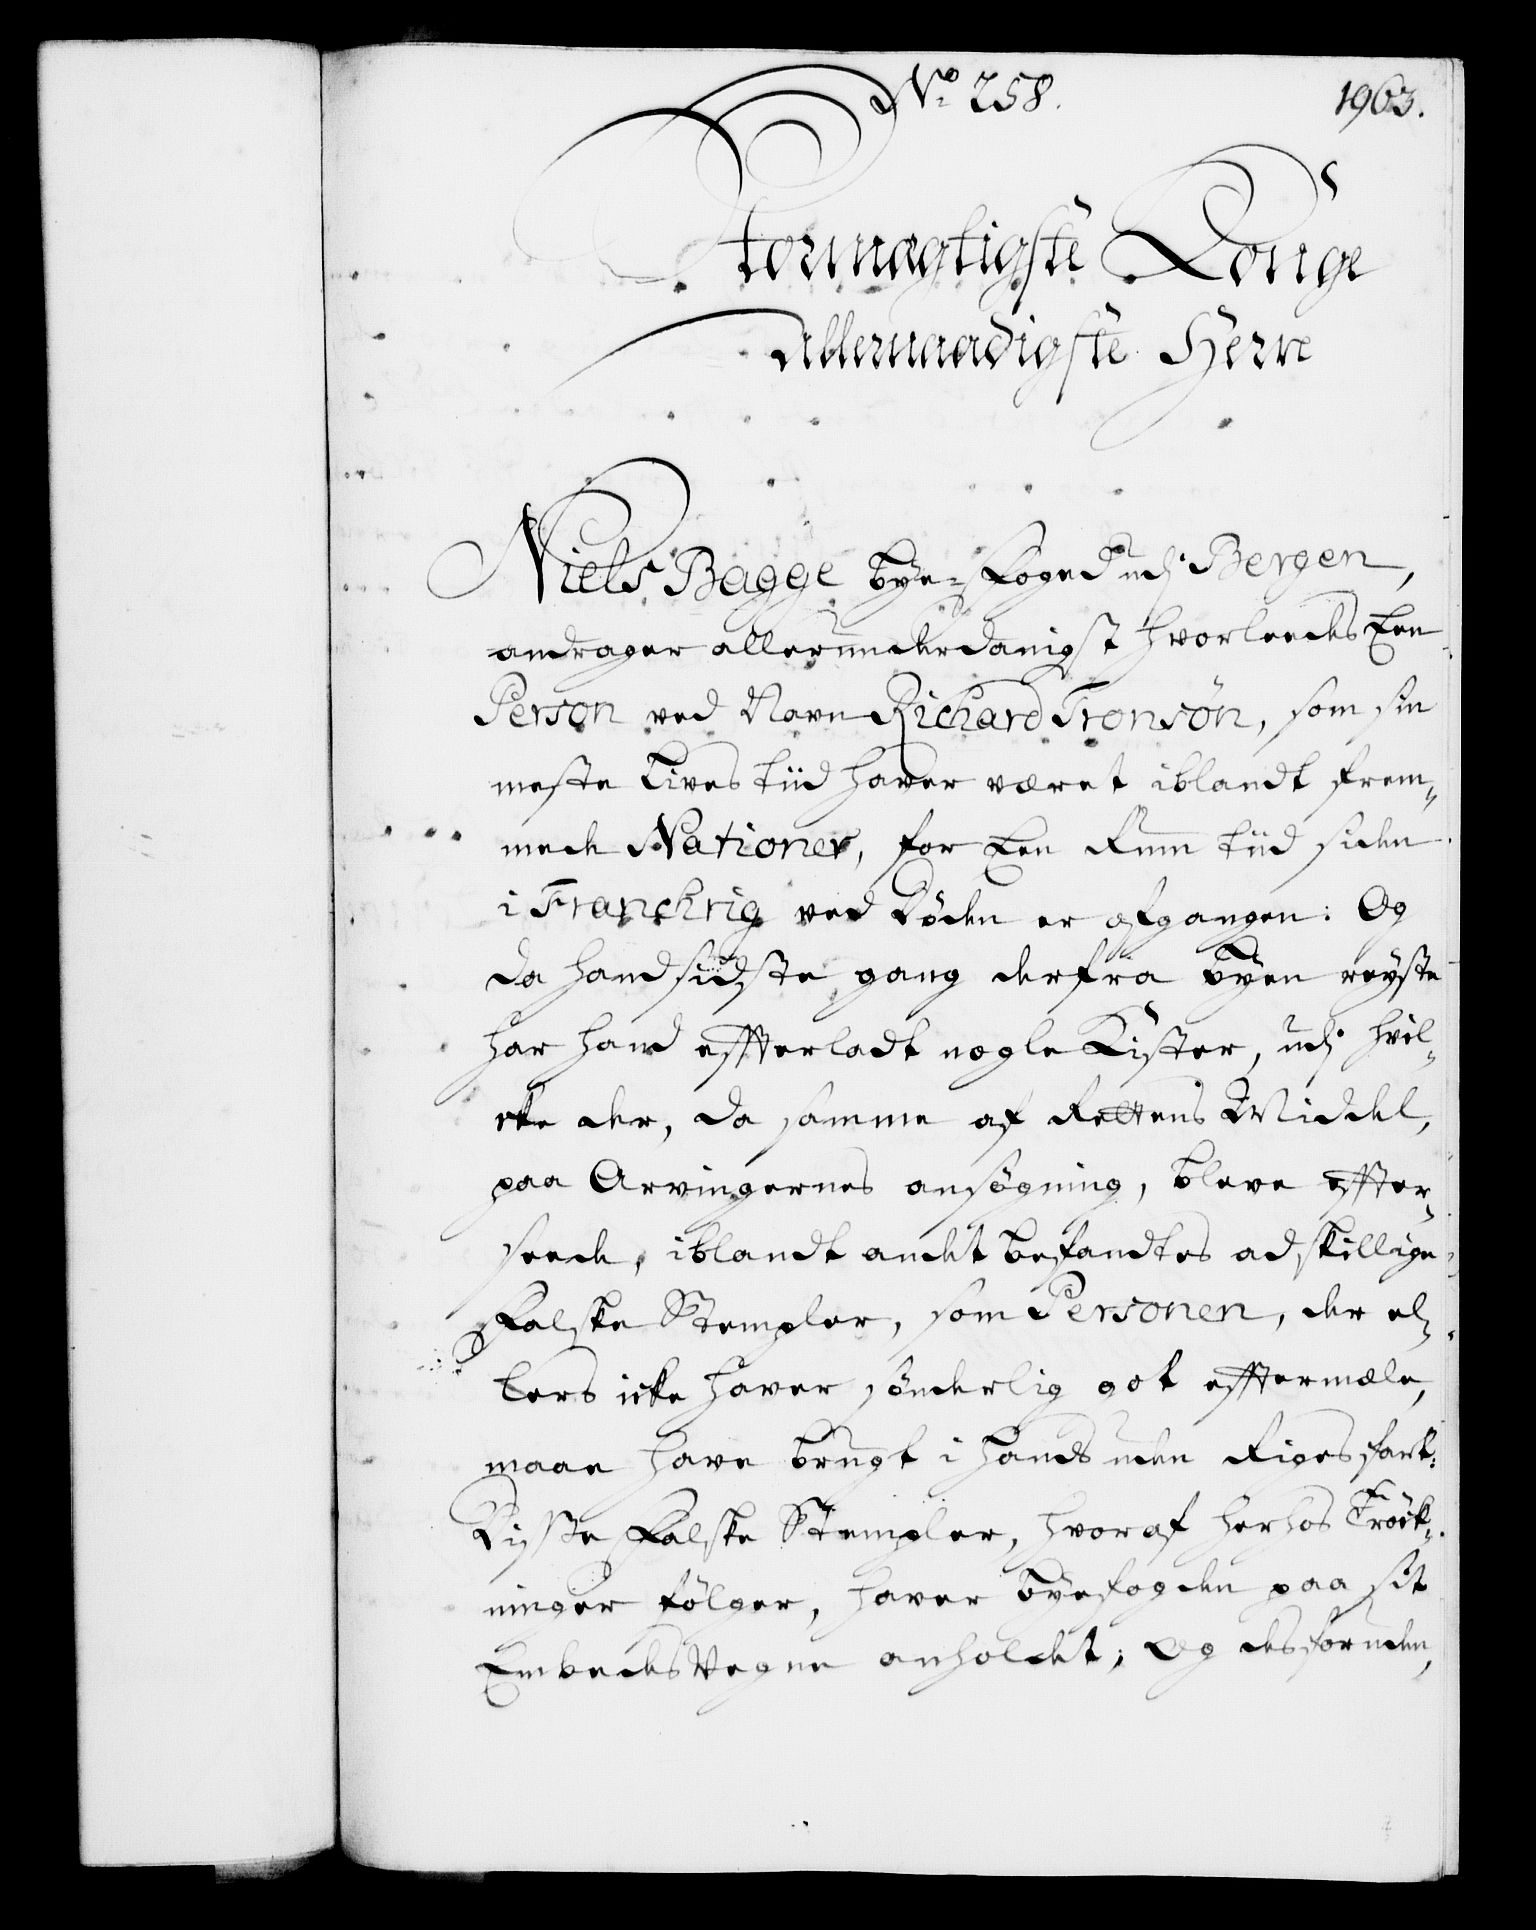 No 258.
1963.
Stormægtigste Konge
Allernaadigste Herre
Niels Bagge bye-foged udj Bergen,
andrager allerunderdanigst hvorleedes Een
Person ved Navn Richard Tronsön, som sin
meste Lives tiid haver været iblandt frem„
mede Nationer, for Een Rum tiid siden
i Franchrig ved Døden er afgangen: Og
da hand sidste gang derfra byen reyste
har hand effterladt nogle Kister, udj hvil„
cke der, da samme af Rettens Middel,
paa Arvingernes ansøgning, bleve effter„
seede, iblandt andet befandtes adskillige
Falske Stempler, som Personen, der el„
lers icke haver sönderlig got efftermæle,
maae have brugt i hands uden Riges fart:
Disse Falske Stempler, hvoraf herhos Tröck„
ninger fölger, haver byefogden paa sit
Embedes Vegne anholdet; Og desforuden,